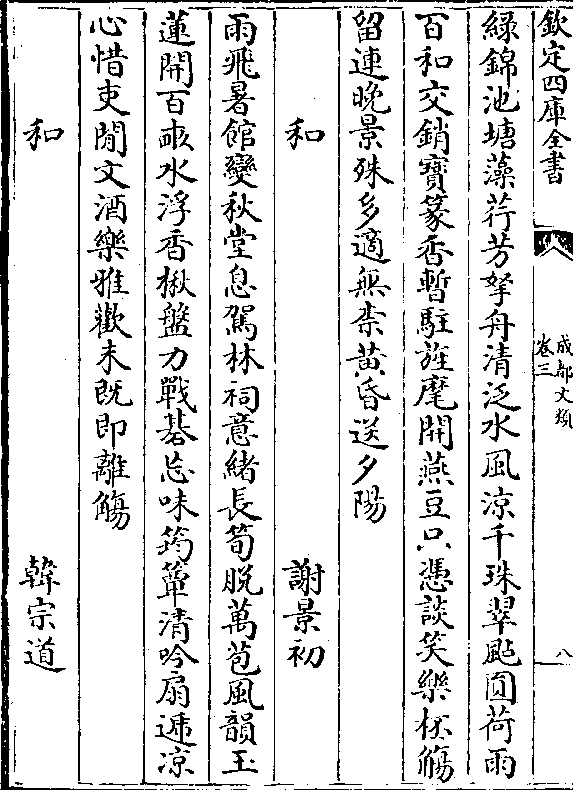 欽定四庫全書
成都文類
卷三
八
綠錦池塘藻荇芳拏舟清泛水風涼千珠翠颭圎荷雨
百和交銷寳篆香暫駐旌麾開燕豆只憑談笑樂杯觴
留連晚景殊多適無柰黄昏送夕陽
和
謝景初
雨飛暑館變秋堂息駕林祠意緒長筍脱萬苞風韻玉
蓮開百畝水浮香楸盤力戰棊忘味筠簟清吟扇遞凉
心惜吏閒文酒樂雅歡未既即離觴
和
韓宗道